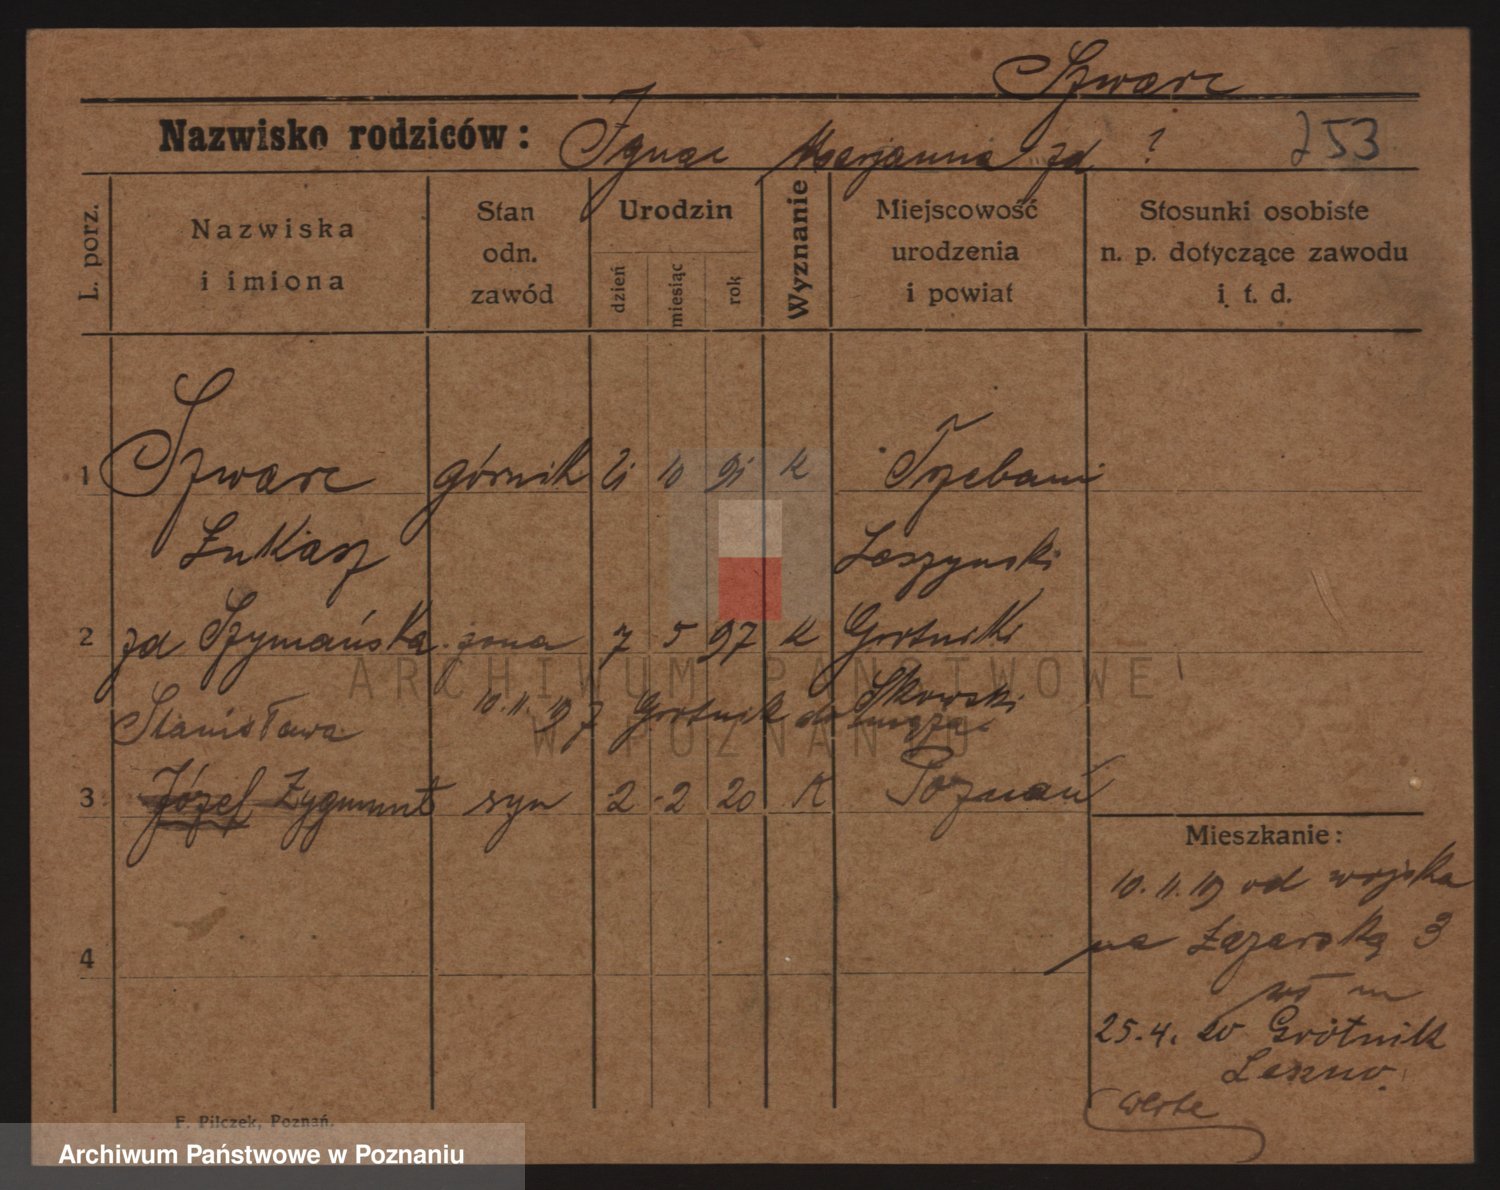 Szwarc
Nazwisko rodziców: Ignac Marjanna zd ? 253
L. porz.
Nazwiska i imiona
Stan odn. zawód
Urodzin
dzień
miesiąc
rok
Wyznanie
Miejscowość urodzenia i powiat
Stosunki osobiste n. p. dotyczące zawodu i t. d.
1 Szwarc górnik 21 10 91 K Trzebani
Łukasz Leszyński
2 zd Szymańska żona 7 5 97 K Grotniki
Stanisława 10.11.19 z Grotnik do męża Skowski
3 Józef Zygmunt syn 2 2 20 K Poznań
Mieszkanie:
10.11.19 od wojska
na Łazarską 3
25.4. 20 Grotnik
Leszno.
4
F. Pilczek, Poznań.
ARCHIWUM PAŃSTWOWE
W POZNANIU
Archiwum Państwowe w Poznaniu